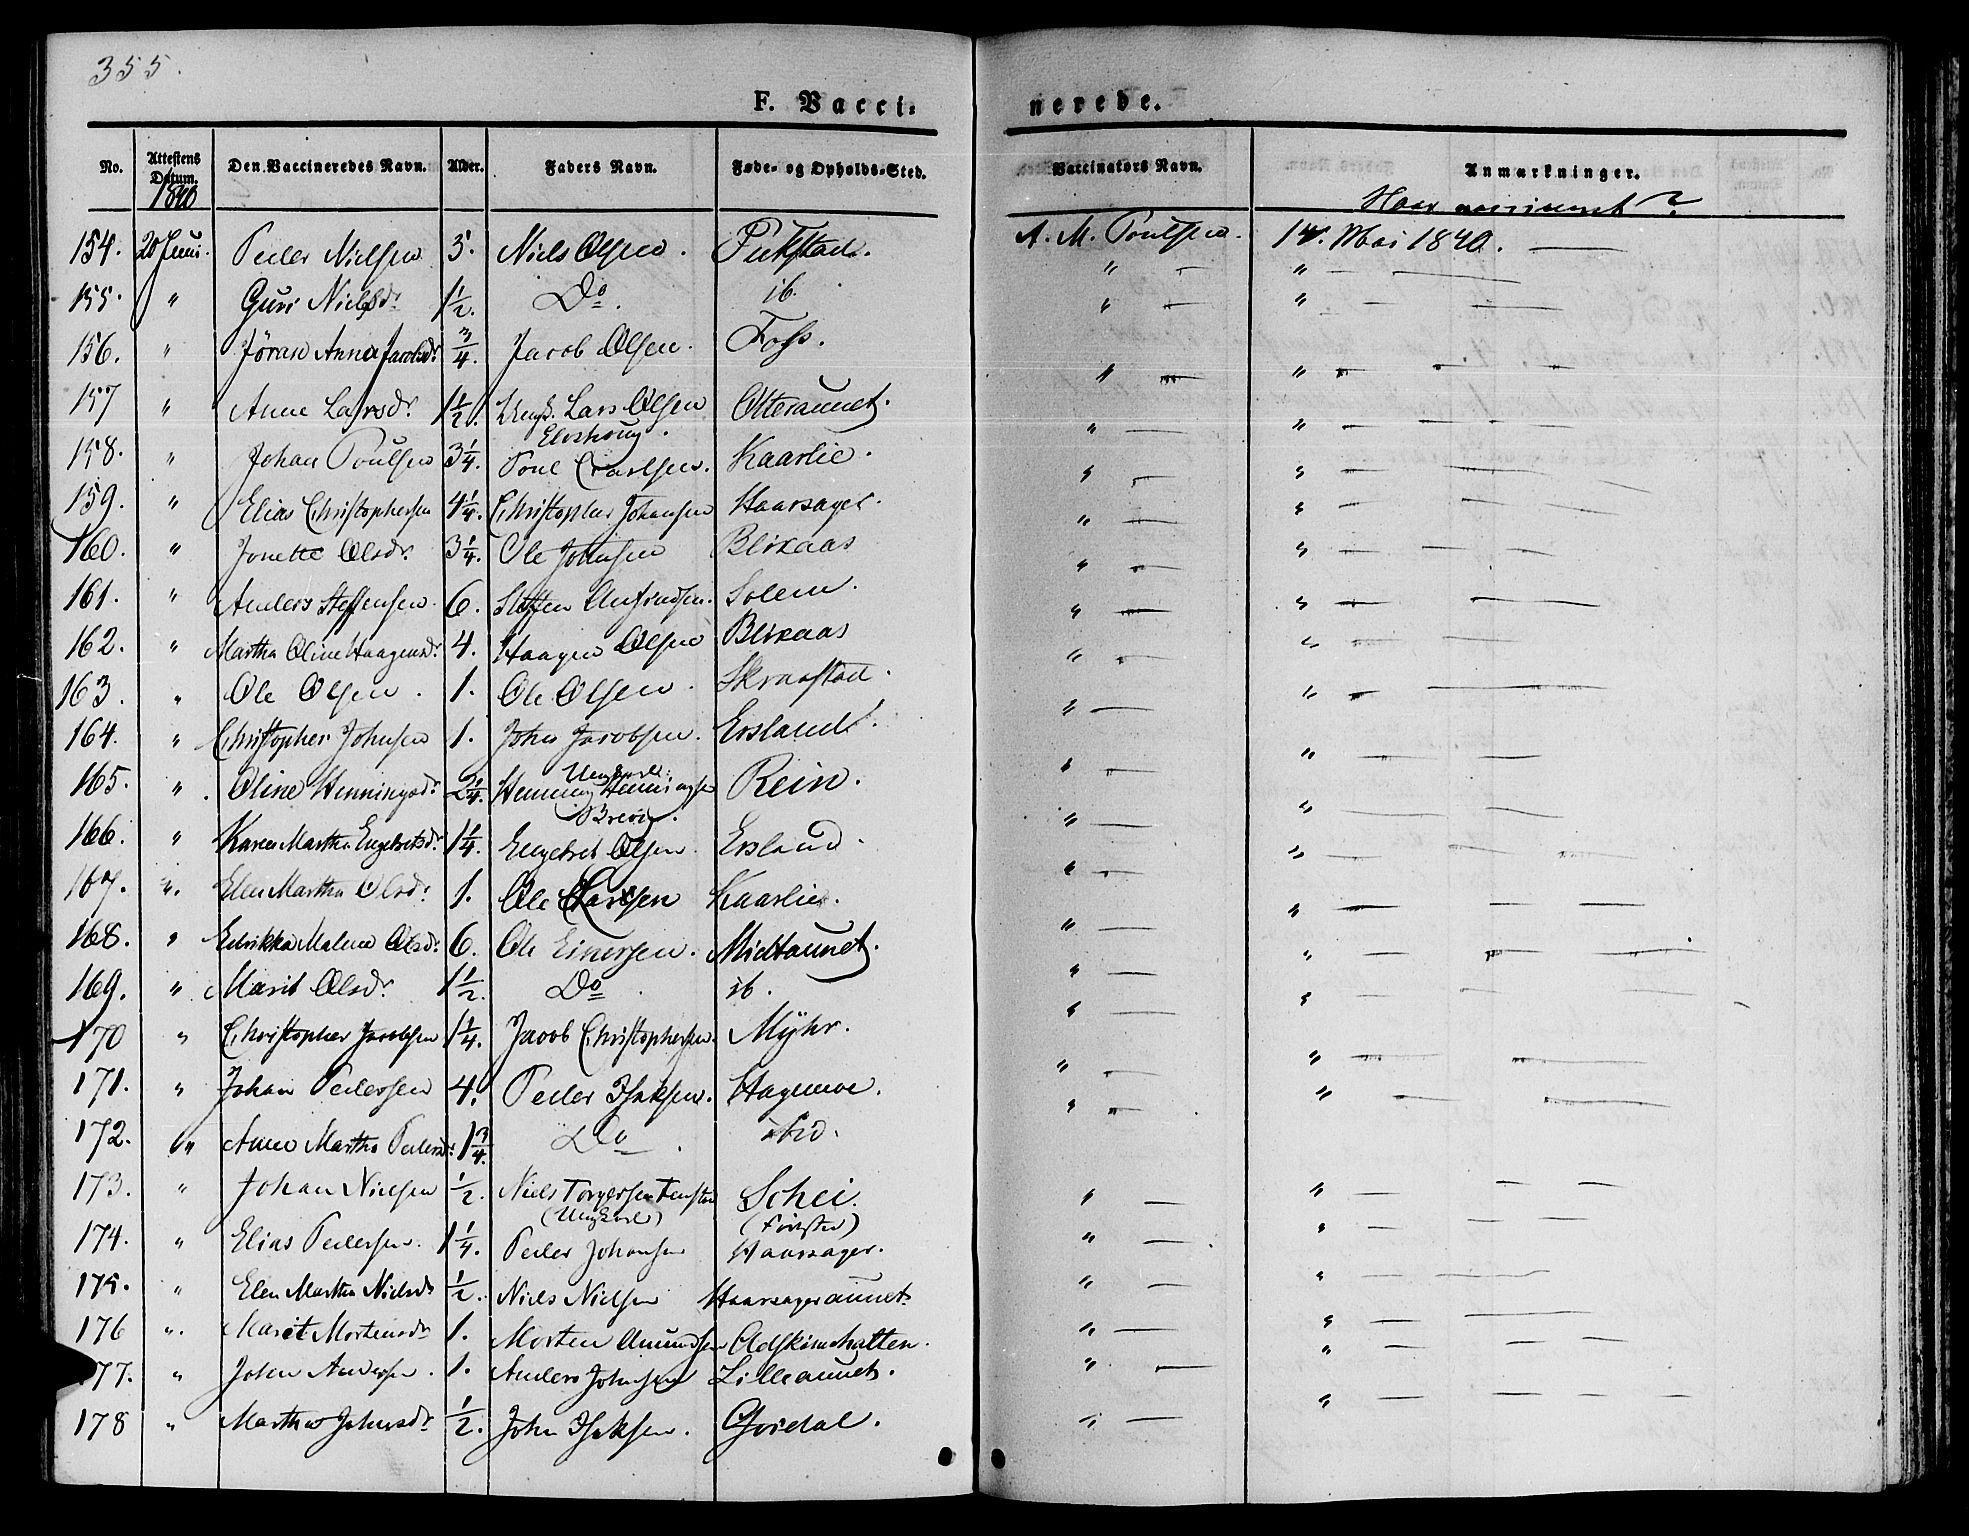 355.
F. Vacci- nerede.
No. Attestens Datum. Den Vaccineredes Navn. Alder. Faders Navn. Føde- og Opholds-Sted. Vaccinators Navn. Anmærkninger.
1840 Naar vaccineret?
154. 20 Juni. Peder Nielsen 5. Niels Olsen. A. M. Poulsen. 14. Mai 1840. —
155. " Guri Nielsdr. 1½. Do. ib. " — " — —
156. " Jöran Anna Jacobsdr. ¾. Jacob Olsen. Foss. " — " — —
157 " Anne Larsdr. 1½. Ungk. Lars Olsen Otteraunet. " — " — — —
158. " Johan Poulsen 3¼. Poul Carlsen. Kaarlie. " — " — — —
159. " Elias Christophersen 4¼. Christopher Johansen Haarsager. " — " — —
160. " Jonette Olsdr. 3¼. Ole Johnsen Blixaas " — " — —
161. " Anders Steffensen. 6. Steffen Solem. " — " — — —
162. " Martha Oline Haagensdr. 4. Haagen Olsen Blixaas " — " — —
163. " Ole Olsen. 1. Ole Olsen. Skraastad. " — " — —
164. " Christopher Johnsen 1. John Jacobsen. Ersland. " — " — —
165. " Oline Henningsdr. 2¼. Ungkarl Henning Henningsen Rein. " — " — — —
166. " Karen Martha Engebretsdr. 1¼. Engebret Olsen. Ersland. " — " — —
167. " Elen Martha Olsdr. 1. Ole Larsen Kaarlie. " — " — — —
168. " Malena Olsdr. 6. Ole Einersen. Midtaunet. " — " — — —
169. " Marit Olsdr. 1½. Do. ib. " — " — — —
170 " Christopher Jacobsen 1¼. Jacob Christophersen. Myhr. " — " — —
171. " Johan Pedersen 4. Peder Isaksen. Hagemoe. " — " — —
172. " Anne Martha Pedersdr. 1¾. Do. " — " — —
173. " Johan Nielsen ½. Niels Torgersen (Ungkarl) Schei. " — " — — —
174. " Elias Pedersen. 1¼. Peder Johansen Haarsager. " — " — —
175. " Elen Martha Nielsdr. ½. Niels Nielsen Haarsageraunet. " — " — —
176 " Marit Mortensdr. 1. Morten Amundsen " — " — —
177. " John Andersen. 1. Anders Johnsen Lilleaunet. " — " — —
178 " Martha Johnsdr. ½. John Isaksen. Gjerdal. " — " — — —